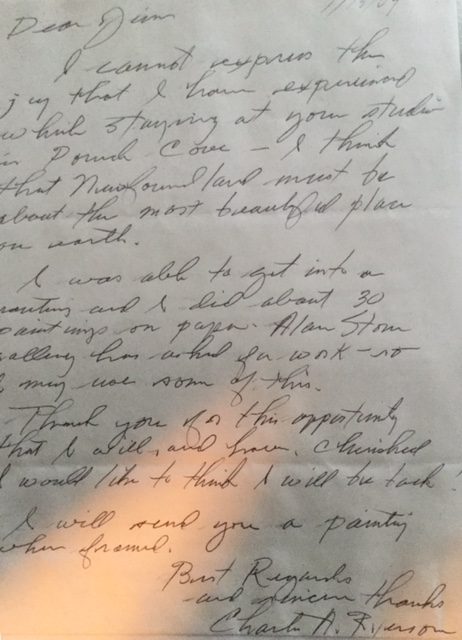 Dear Jim
I cannot express the
joy that I have experienced
while staying at your studio
in Pouch Cove – I think
that Newfoundland must be
about the most beautiful place
on earth.
I was able to get into a
routine and I did about 30
paintings on paper. Alan Stone
gallery has asked for work – so
I may use some of this.
Thank you for this opportunity
that I will, and have, cherished
I would like to think I will be back!
I will send you a painting
when framed.
Best Regards
and sincere thanks
Charles A.